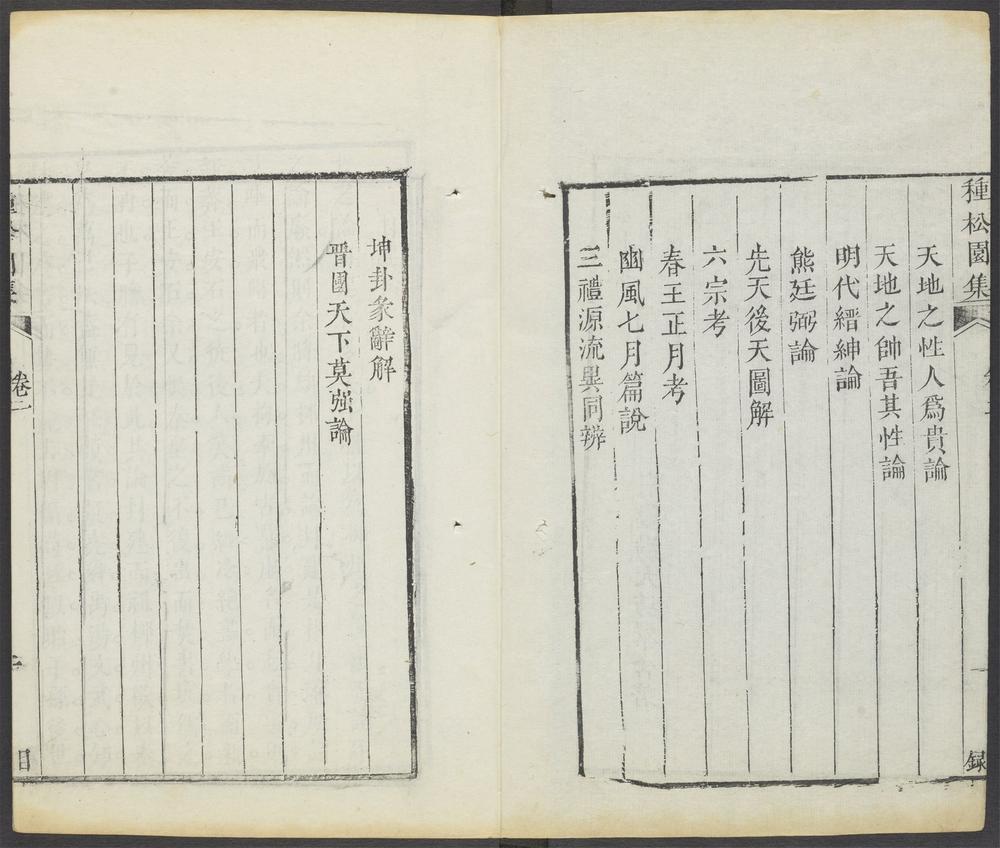 種松園集
一
錄
天地之性人爲貴論
天地之帥吾其性論
明代縉紳論
熊廷弼論
先天後天圖解
六宗考
春王正月考
豳風七月篇說
三禮源流異同辨
坤卦彖辭解
晉國天下莫强論
卷二
二
目